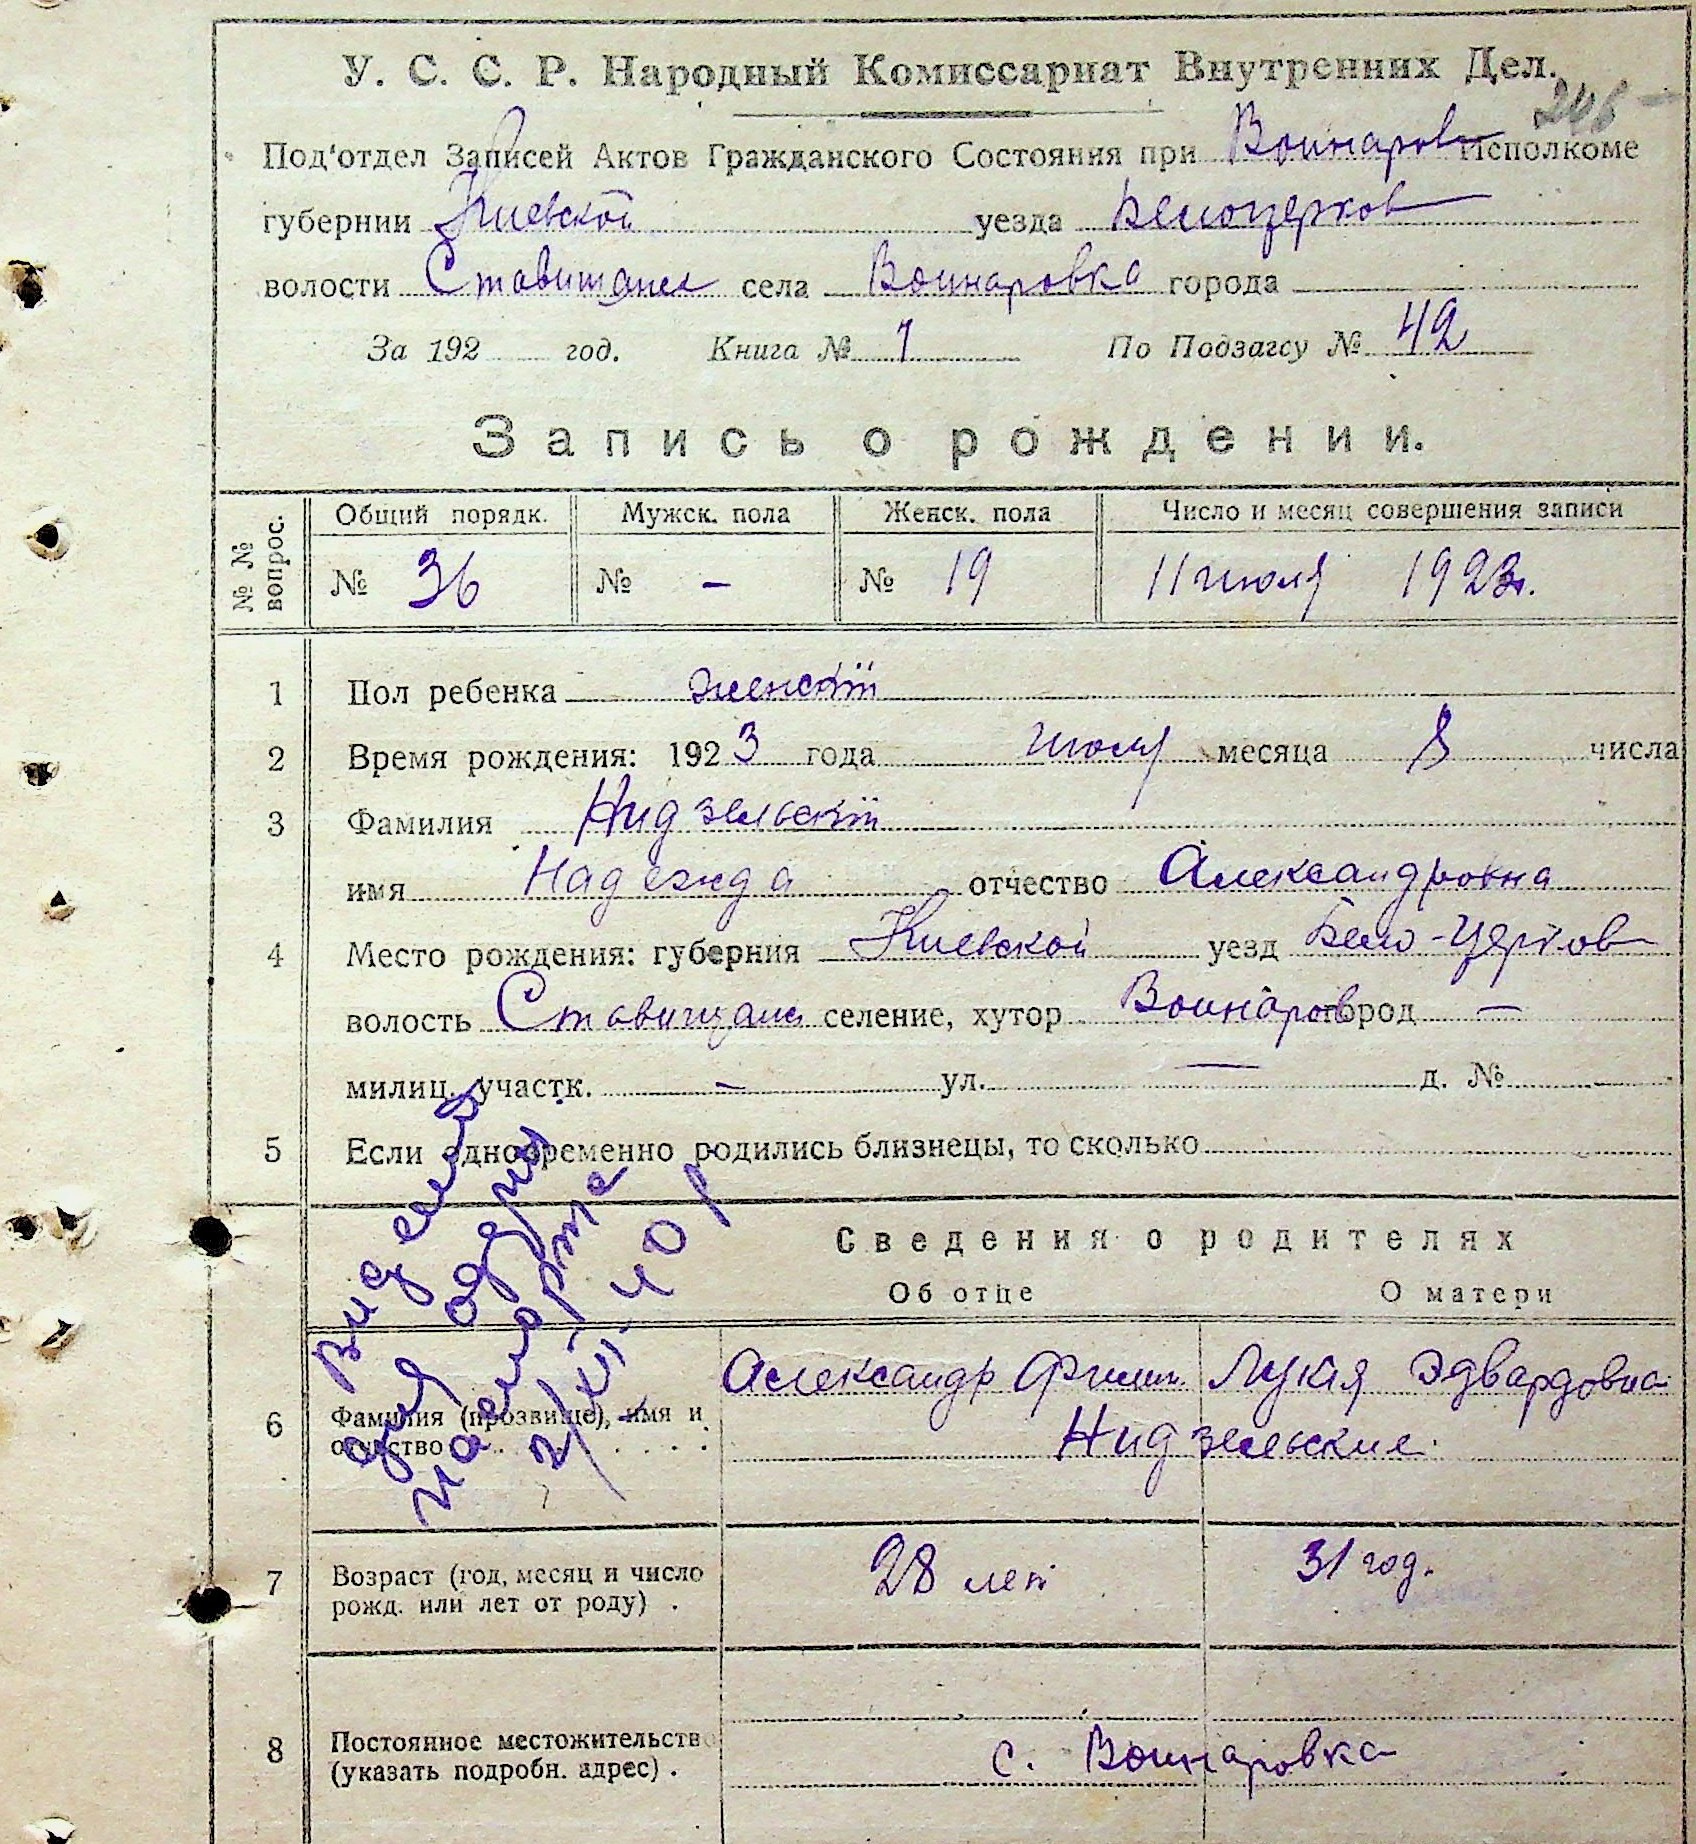 У. С. С. Р. Народный Комиссариат Внутренних Дел.
246
Под'отдел Записей Актов Гражданского Состояния при Воинаров Исполкоме
губернии Киевской уезда Белоцерков
волости Ставищанс села Воинаровка города
За 192 год. Книга № 1 По Подзагсу № 42
Запись о рождении.
№ № вопрос.
Общий порядк. Мужск. пола Женск. пола Число и месяц совершения записи
№ 36 № – № 19 11 июля 1923 г.
1 Пол ребенка женскій
2 Время рождения: 1923 года июля месяца 8 числа
3 Фамилия Нидзельскій
имя Надежда отчество Александровна
4 Место рождения: губерния Киевской уезд Бело-Церков
волость Ставищанс селение, хутор Воинаров город —
милиц. участк. — ул. — д. №
5 Если одновременно родились близнецы, то сколько
Сведения о родителях
Об отце О матери
6 Фамилия (прозвище), имя и отчество
Александр Филип. Лукія Эдвардовна
Нидзельские.
7 Возраст (год, месяц и число рожд. или лет от роду) .
28 лет 31 год.
8 Постоянное местожительств (указать подробн. адрес) .
с. Воинаровка
для
паспорта
2/XII-40 р